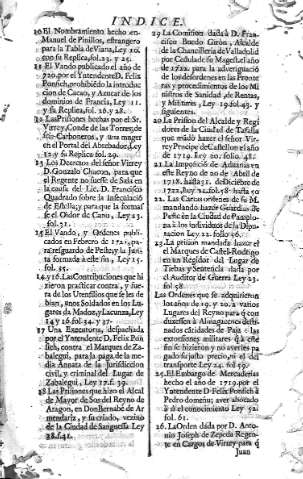 INDICE.
10 El Nombramiento hecho en
Manuel de Pinillos, estrangero
para la Tabla de Viana, Ley 10.
con su Replica, fol. 23. y 25.
11 El Vando publicado el año de
720. por el Yntendente D. Felix
Ponsich, prohibiendo la introduc
cion de Cacao, y Azucar de los
dominios de Francia, Ley 11.
y su Replica, fol. 26. y 28.
12 Las Prisiones hechas por el Sr.
Virrey, Conde de las Torres, de
seis Carboneros, y una muger
en el Portal del Abrebador, Ley
12. y su Replica fol. 29.
13 Los Decretos del señor Virrey
D. Gonzalo Chacon, para que
el Regente no fuesse de Sala en
la causa del Lic. D. Francisco
Quadrado sobre la insaculacion
de Estella, y para que la forma
se el Oidor de Canu, Ley 13.
fol. 31.
15 El Vando, y Ordenes publi
cados en Febrero de 1721. pa-
ra resguardo de Peste, y la jun
ta formada a este fin, Ley 15.
fol. 35.
14. y 16. Las Contribuciones que hi
zieron practicar contra, y fue
ra de los Utensilios que se les de
bian, unos Soldados en los Lu
gares da Madoz, y Lacunza, Ley
14 y 16 fol. 34. y 37.
17 Una Executoria, despachada
por el Yntendente D. Felix Pon
sich, contra el Marques de Za-
balegui, para la paga de la me
dia Annata de la Jurisdiccion
civil, y criminal del Lugar de
Zabalegui, Ley 17. f. 39.
18 Las Prisiones que hizo el Alcal
de Mayor de Sos del Reyno de
Aragon, en
y su criado, vezino
de la Ciudad de Sanguessa Ley
18. f. 41.
19 La Comission dada à D. Fran-
cisco Buedo Giron, Alcalde
de la Chancilleria de Valladolid
por Cedula de su Magest. el año
de 1722. para la averiguacion
de los desordenes en las Fronte
ras y procedimientos de los Mi
nistros de Sanidad de Rentas,
y Militares, Ley 19. fol. 43. y
siguientes.
20 La Prision del Alcalde y Regi
dores de la Ciudad de Tafalla
que mandò hazer el señor Vir-
rey Principe de Castellon el año
de 1719. Ley 20. fol. 48.
21 La Imposicion de Aduanas en
este Reyno de 20 de Abril de
1718. hasta 31. de Diziembre de
1722. Ley 21. fol. 58. hasta 60
22. Las Cartas ordenes de su M.
mandando hazer Guardias de
Peste en la Ciudad de Pamplo-
na à los individuos de la Dipu-
tacion Ley 22. folio 56.
23. La prision mandada hazer el
el Marques de Castel-Rodrigo
en un Regidor del Lugar de
Tiebas y Sentencia dada por
el Auditor de Guerra Ley 23.
fol 58
Las Ordenes que se requirieron
los años de 19. y 20. à varios
Lugares del Reyno para q̃ con
duxesen à Alojagaciones
nadas cãtidades de Paja e las
extorsiones militares q̃ à este
fin se hizieron y no averles pa
gado su justo precio, ni el del
transporte Ley 24. fol 49.
25. El Embargo de Mercaderias
hecho el año de 1719. por el
Yntendente D Felix Ponsich à
Pedro domene, aver ahorado
à el conocimiento Ley 52.
fol. 61.
26. La Orden dada por D. Anto-
nio Joseph de Zepeda Regen-
te en Cargos de Virrey para q̃
Juan